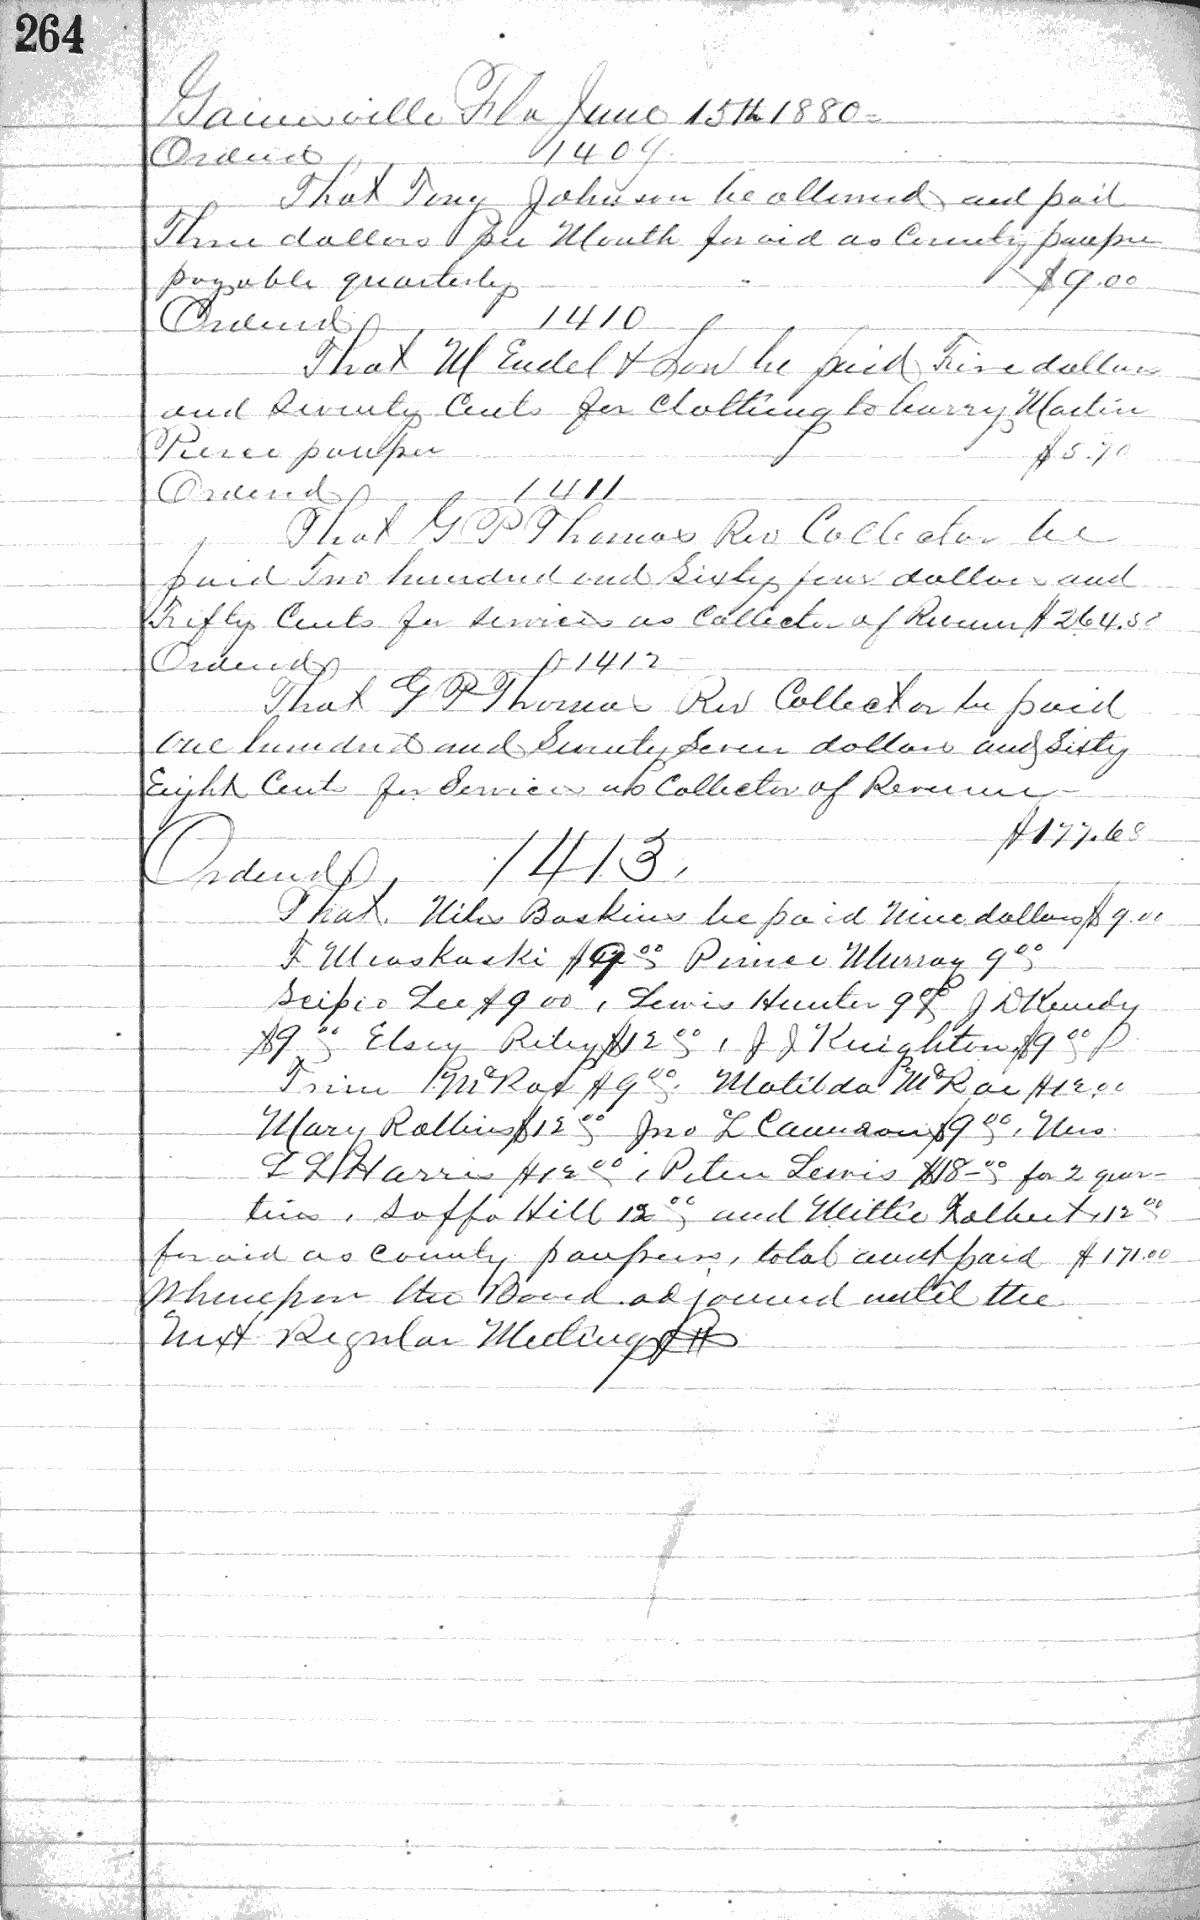 264
Gainesville Fla June 15th 1880=
Ordered 1409.
That Tony Johnson be allowed and paid
Three dollars per Month for aid as County pauper
payable quarterly $9.00
Ordered 1410
That M Endel & Son be paid Five dollars
and Seventy Cents for Clothing to Martin
Pierce pauper $5.70
Ordered 1411
That G P Thomas Rev Collector be
paid Two hundred and Sixty four dollars and
Fifty Cents for services as Collector of Revenue $264.50
Ordered 1412
That G P Thomas Rev Collector be paid
One hundred and Seventy Seven dollars and Sixty
Eight Cents for Services as Collector of Revenue
$177.68
Ordered 1413.
That Baskins be paid Nine dollars $9.00
F $9 00 Prince Murray 9 00
Scipio Lee $9 00, Lewis Hunter 9 00 J D Kenedy
$9 00 Elsey Riley $12 00, J J Knighton $9 00
McRae $9 00. Matilda McRae $12.00
Mary Rollins $12 00 Jno L Cameron $9 00,
L L Harris $12 00, Peter Lewis $18-00 for 2 quar-
ters, Saffo Hill 12 00 and Mittie 12 00
for aid as county paupers, total amt paid $171.00
Whereupon the Board adjourned until the
Next Regular Meeting